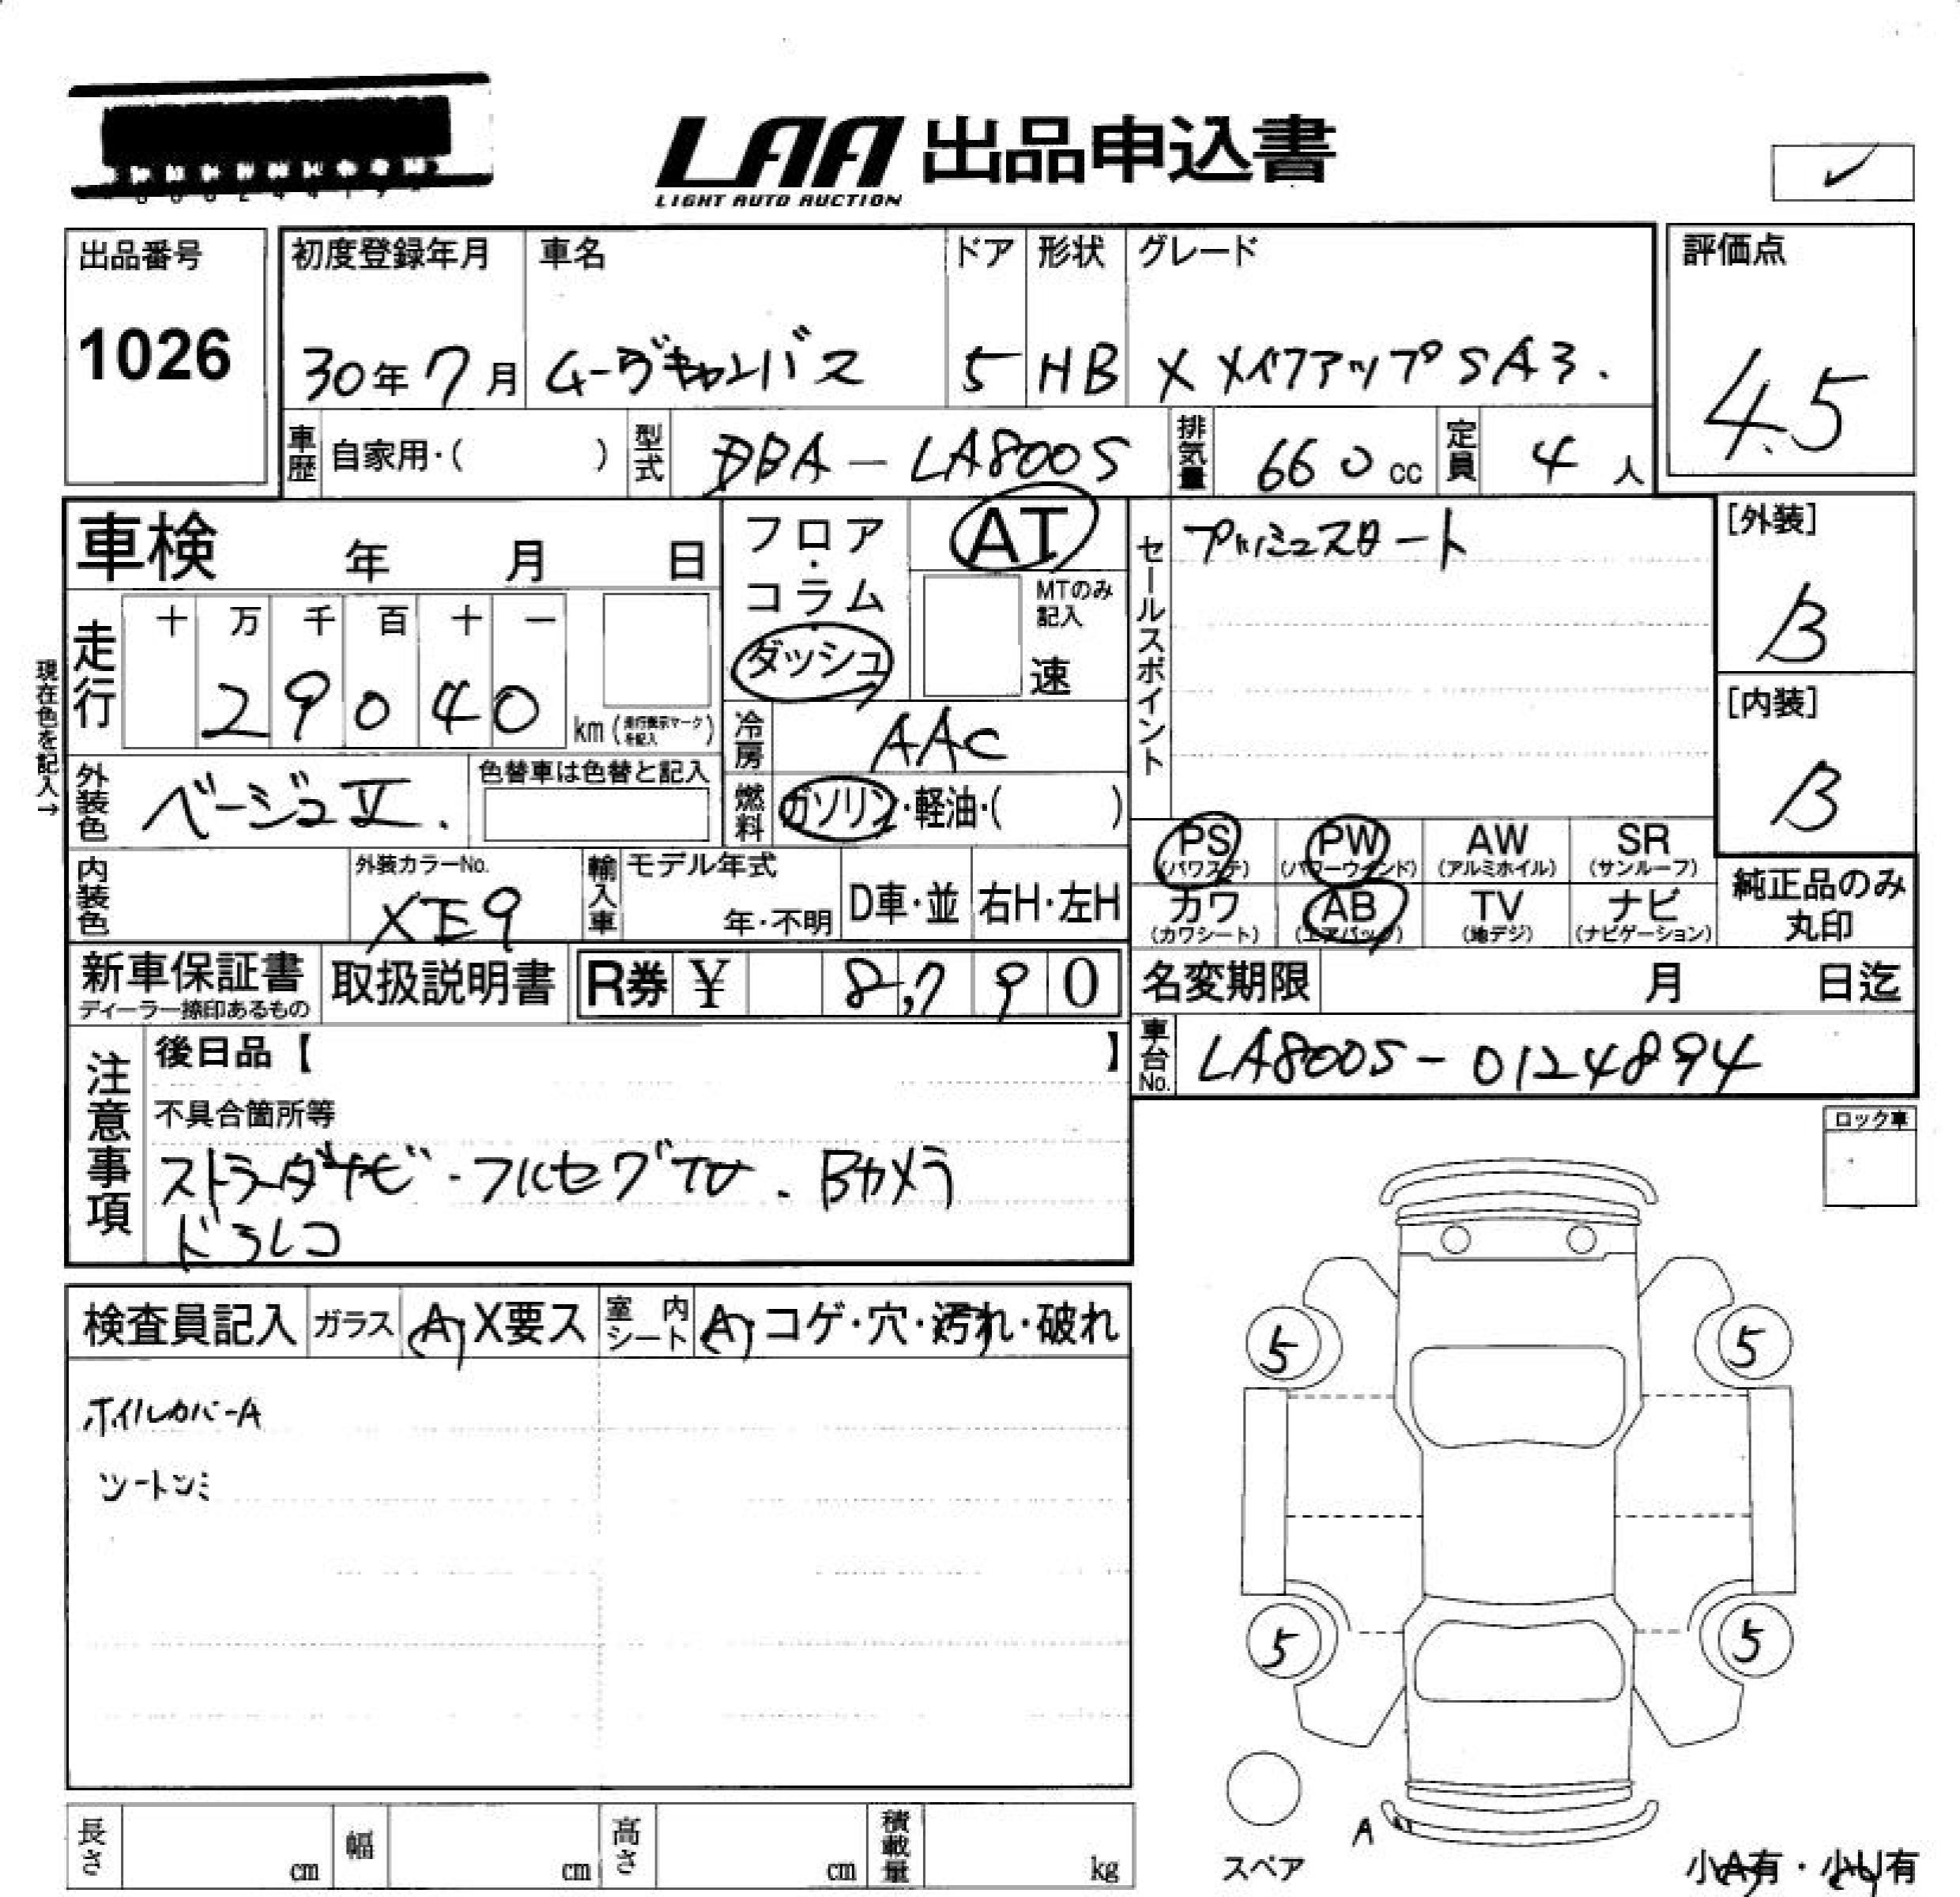 LAA 出品申込書
LIGHT AUTO AUCTION
出品番号
1026
初度登録年月 車名 ドア 形状 グレード
30年7月 ムーヴキャンバス 5 HB X メイクアップSA3.
評価点
4.5
車歴 自家用・( ) 型式 DBA-LA800S 排気量 660cc 定員 4人
車検 年 月 日
フロア・コラム・ダッシュ AT
MTのみ記入
速
セールスポイント プッシュスタート
[外装]
B
[内装]
B
現在色を記入→
走行 十 万 千 百 十 一
29040 km (走行表示マークを記入)
冷房 AAC
外装色 ベージュⅡ. 色替車は色替と記入
燃料 ガソリン・軽油・( )
PS (パワステ) PW (パワーウインド) AW (アルミホイル) SR (サンルーフ)
カワ (カワシート) AB (エアバッグ) TV (地デジ) ナビ (ナビゲーション)
純正品のみ丸印
内装色 外装カラーNo. XE9 輸入車 モデル年式 年・不明 D車・並 右H・左H
新車保証書 ディーラー捺印あるもの 取扱説明書 R券 ¥ 8,790
名変期限 月 日迄
車台No. LA800S-0124894
注意事項 後日品【 】
不具合箇所等
ストラーダナビ・フルセグTV. Bカメラ
ドラレコ
ロック車
検査員記入 ガラス A・X要ス 室内シート A・コゲ・穴・汚れ・破れ
ホイルカバーA
ツートン
5 5
5 5
A
スペア
小A有・小U有
長さ cm 幅 cm 高さ cm 積載量 kg